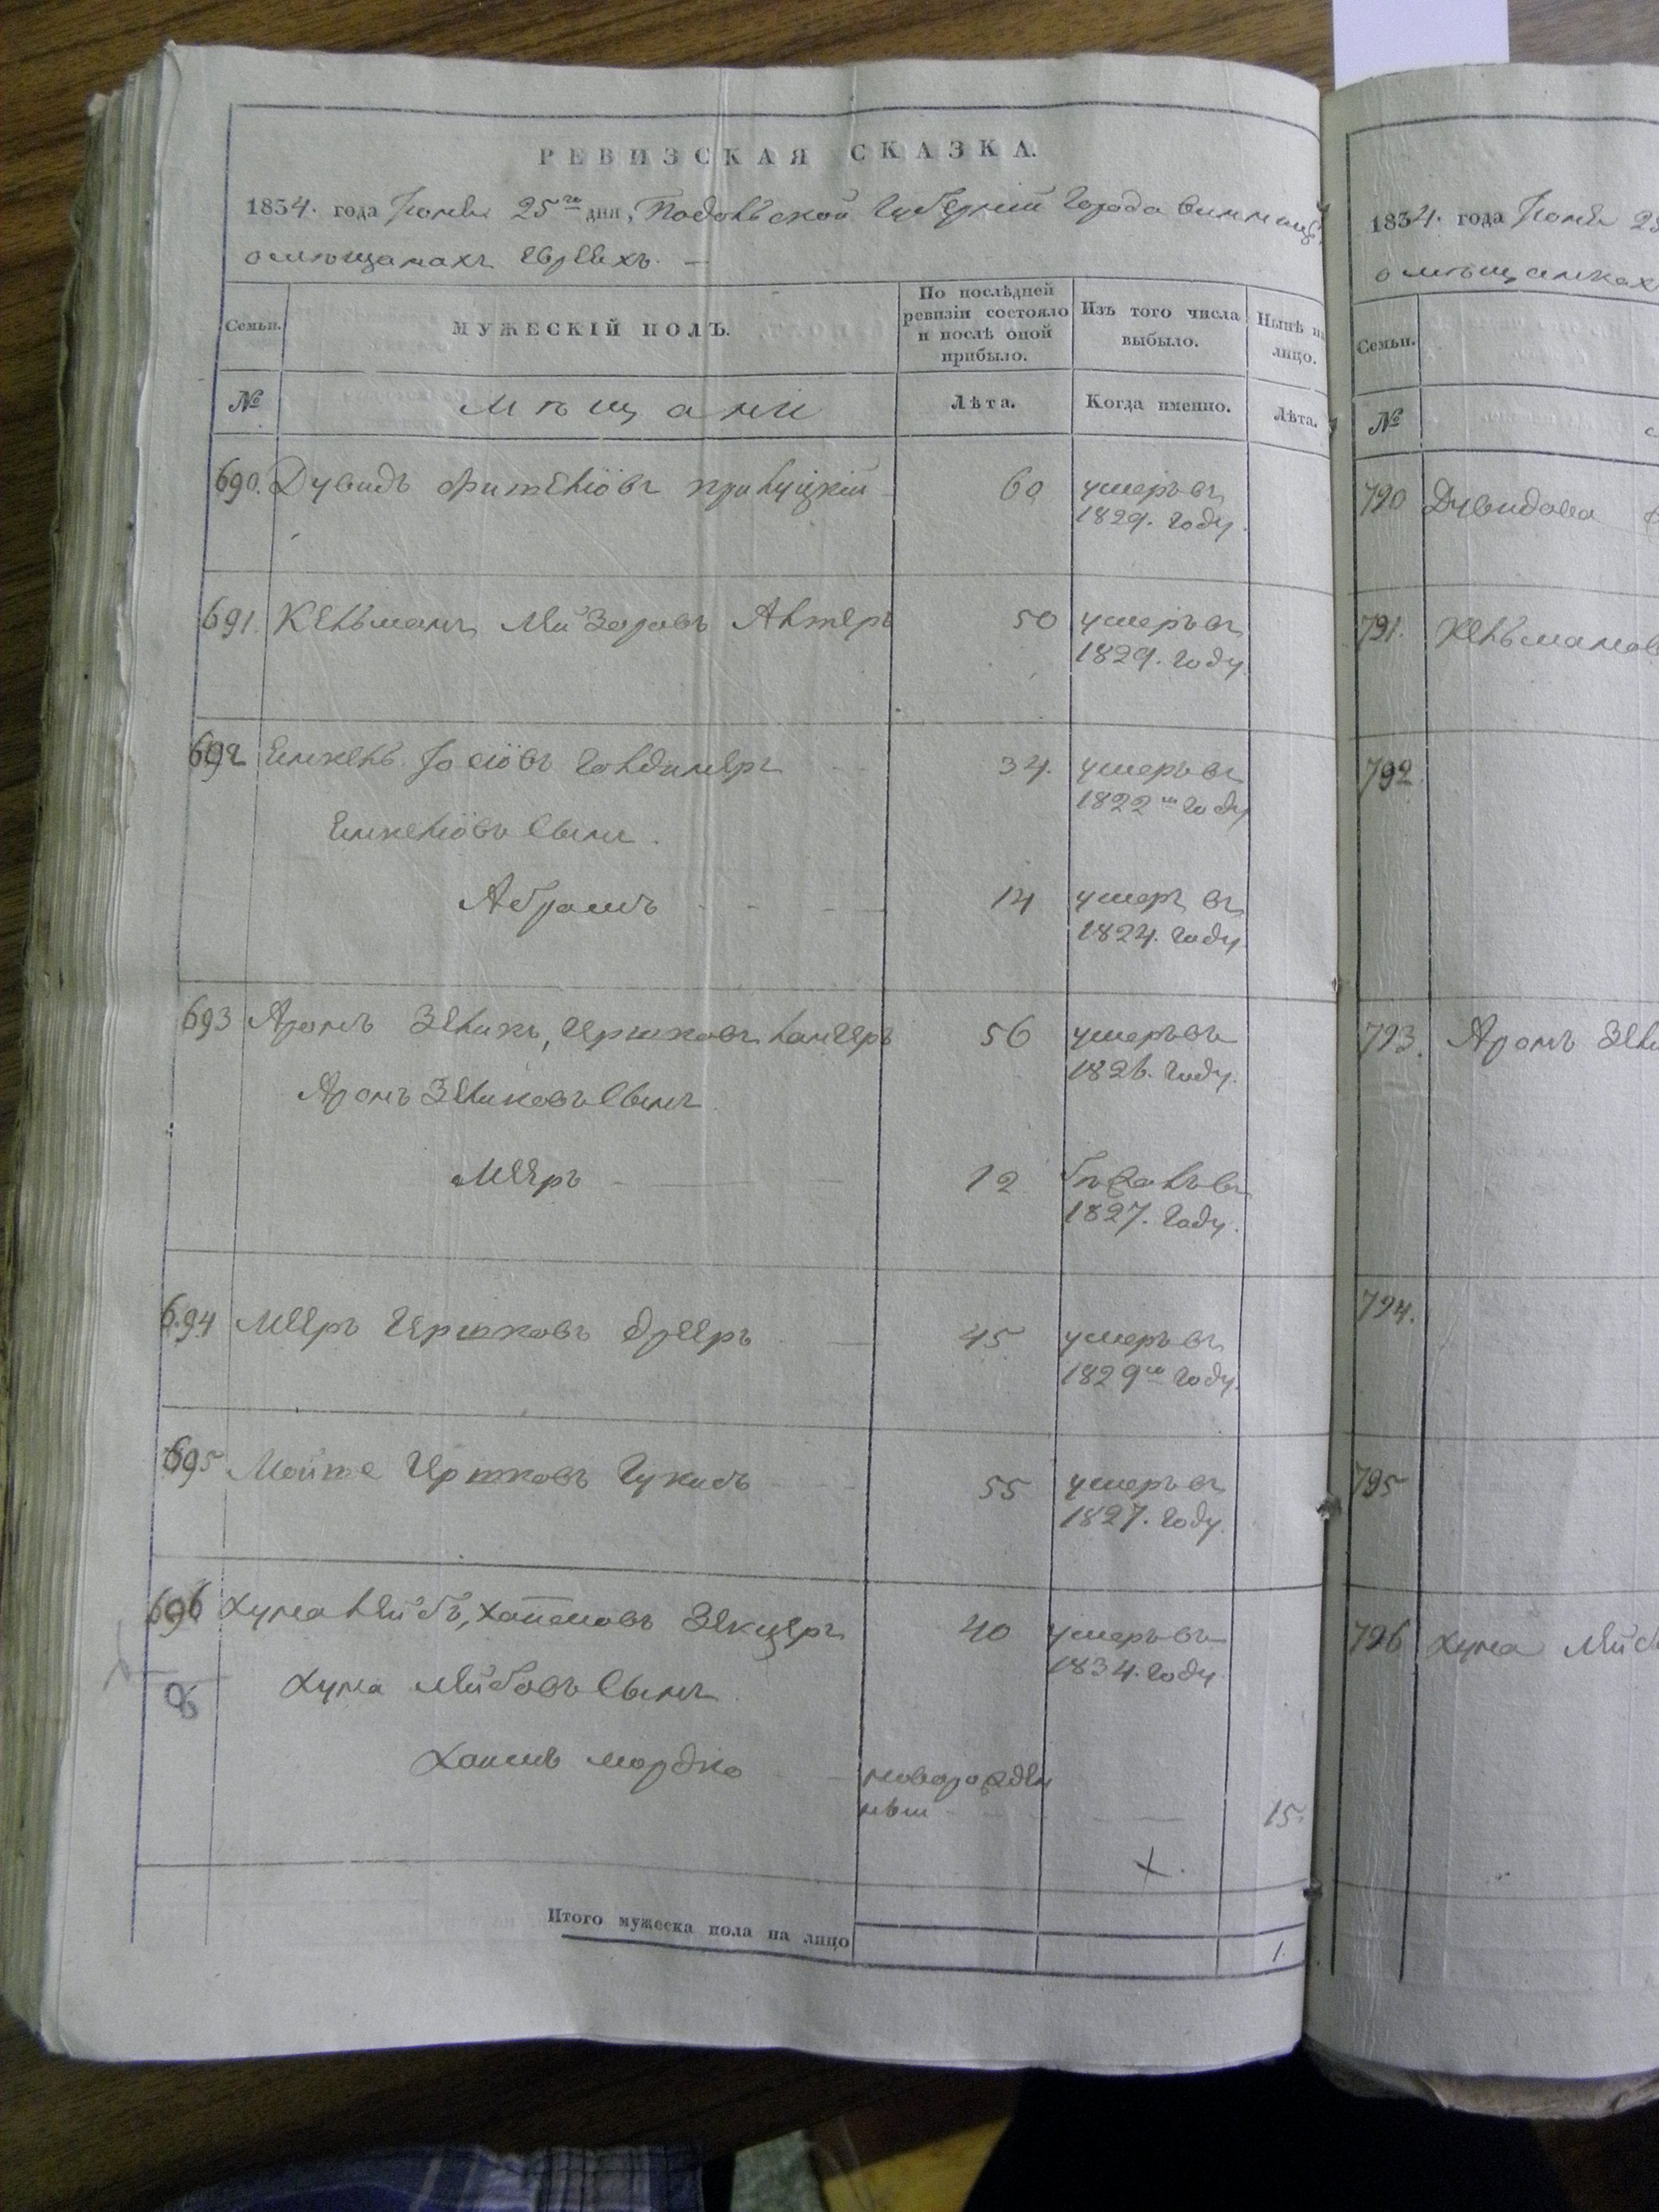 РЕВИЗСКАЯ СКАЗКА.
1834. года Іюня 25го дня, Подольской Губерніи Города Винницы
о мѣщанахъ Евреяхъ. —
Семьи.
МУЖЕСКІЙ ПОЛЪ.
По послѣдней ревизіи состояло и послѣ оной прибыло.
Изъ того числа выбыло.
Нынѣ на лицо.
№
Мѣщане
Лѣта.
Когда именно.
Лѣта.
690. Дувидъ 60 умеръ въ
1829. году.
691. Кельманъ Лейзоровъ Альтеръ 50 умеръ въ
1829. году.
692 Іосіовъ Гольдинеръ 34. умеръ въ
1822м году
сынъ.
Абрамъ 14 умеръ въ
1824. году.
693 Аронъ Зеликъ, Гершковъ Лангеръ 56 умеръ въ
1826. году.
Аронъ Зеликовъ сынъ
Мееръ 12 бѣжалъ въ
1827. году.
694 Мееръ Гершковъ Дрееръ 45 умеръ въ
1829м году.
695 Мойше Гершковъ 55 умеръ въ
1827. году.
696 Хуна Лейбъ, Хаимовъ Зекцеръ 40 умеръ въ
1834. году.
Хуна Лейбовъ сынъ
Хаимъ Мордко новорожден
ный 15.
Х.
Итого мужеска пола на лицо 1.
1834. года Іюня 25
о мѣщанках
Семьи.
№
790 Дувидова
791. Кельманов
792.
793. Аронъ Зели
794.
795
796 Хуна Лейб